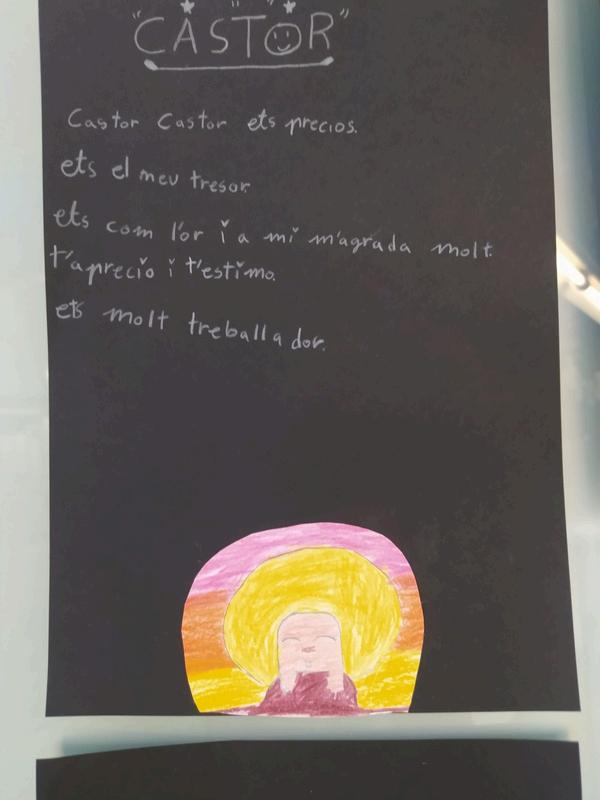 "CASTOR"
Castor Castor ets precios.
ets el meu tresor.
ets com l'or i a mi m'agrada molt.
t'aprecio i t'estimo.
ets molt treballador.